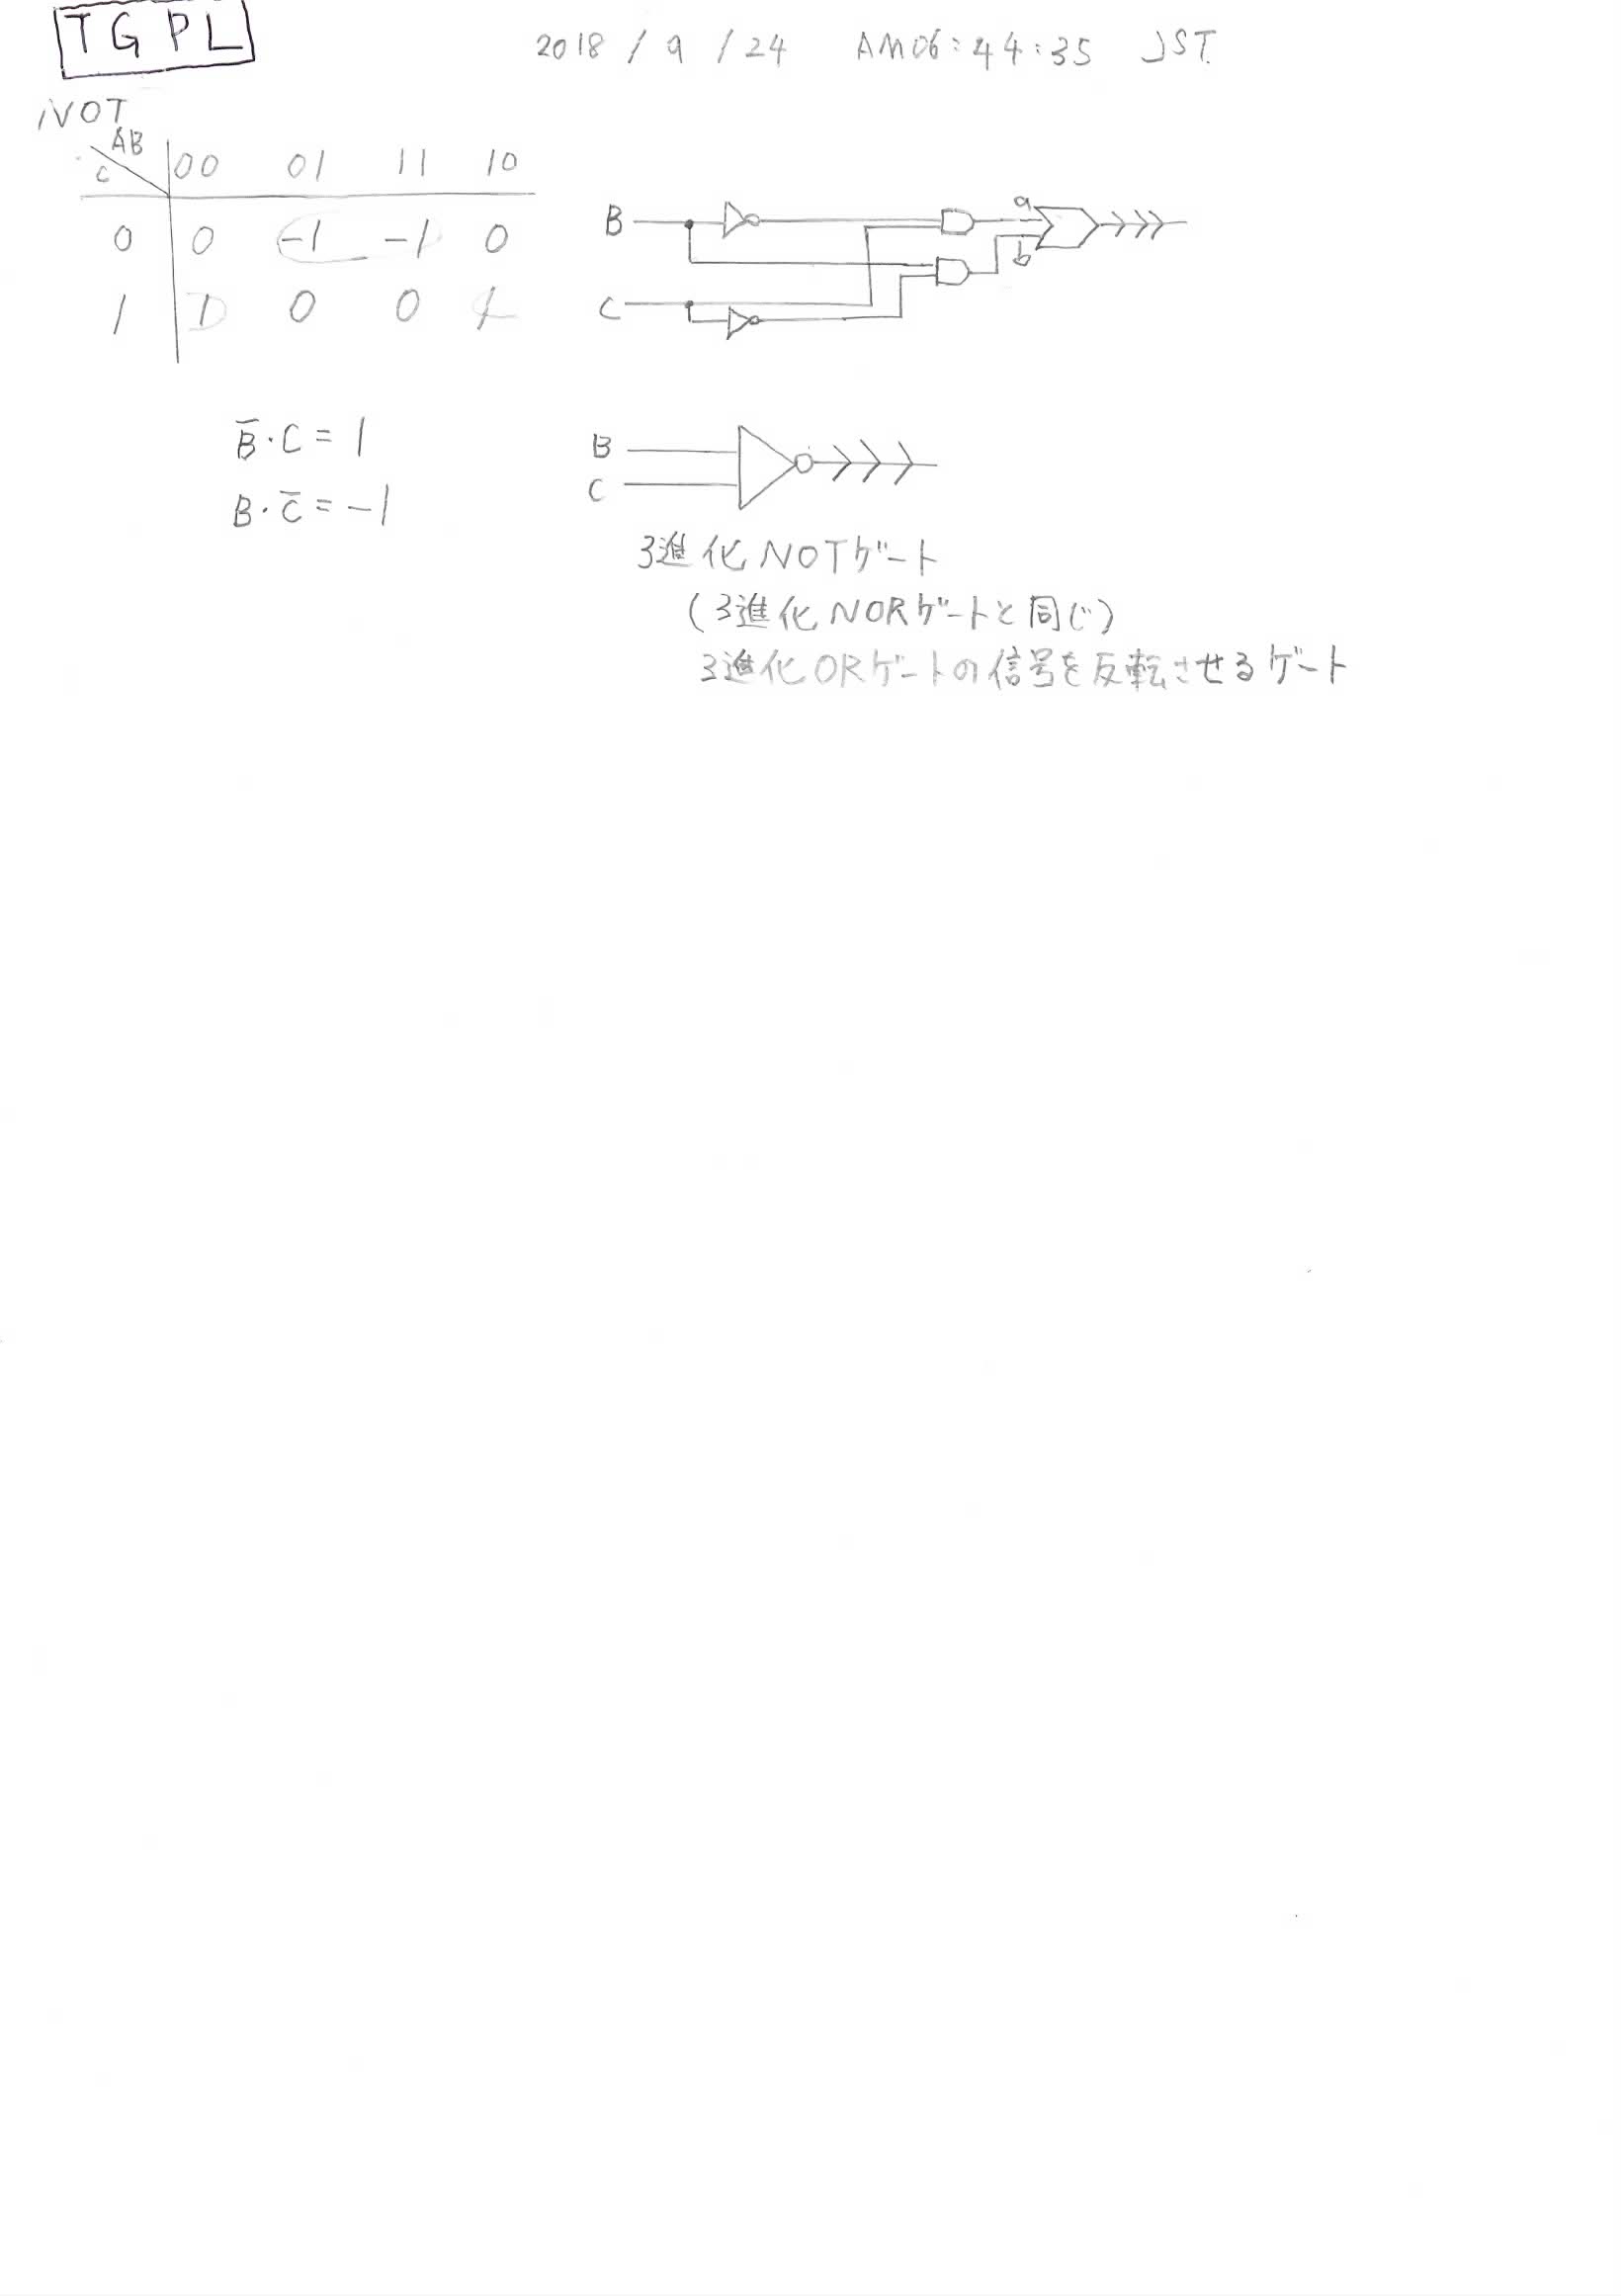 TGPL
2018 / 9 / 24 AM06:44:35 JST
NOT
AB
C
00 01 11 10
0 0 -1 -1 0
1 1 0 0 1
B
C
a
b
B̅・C = 1
B・C̅ = -1
B
C
3進化NOTゲート
(3進化NORゲートと同じ)
3進化ORゲートの信号を反転させるゲート